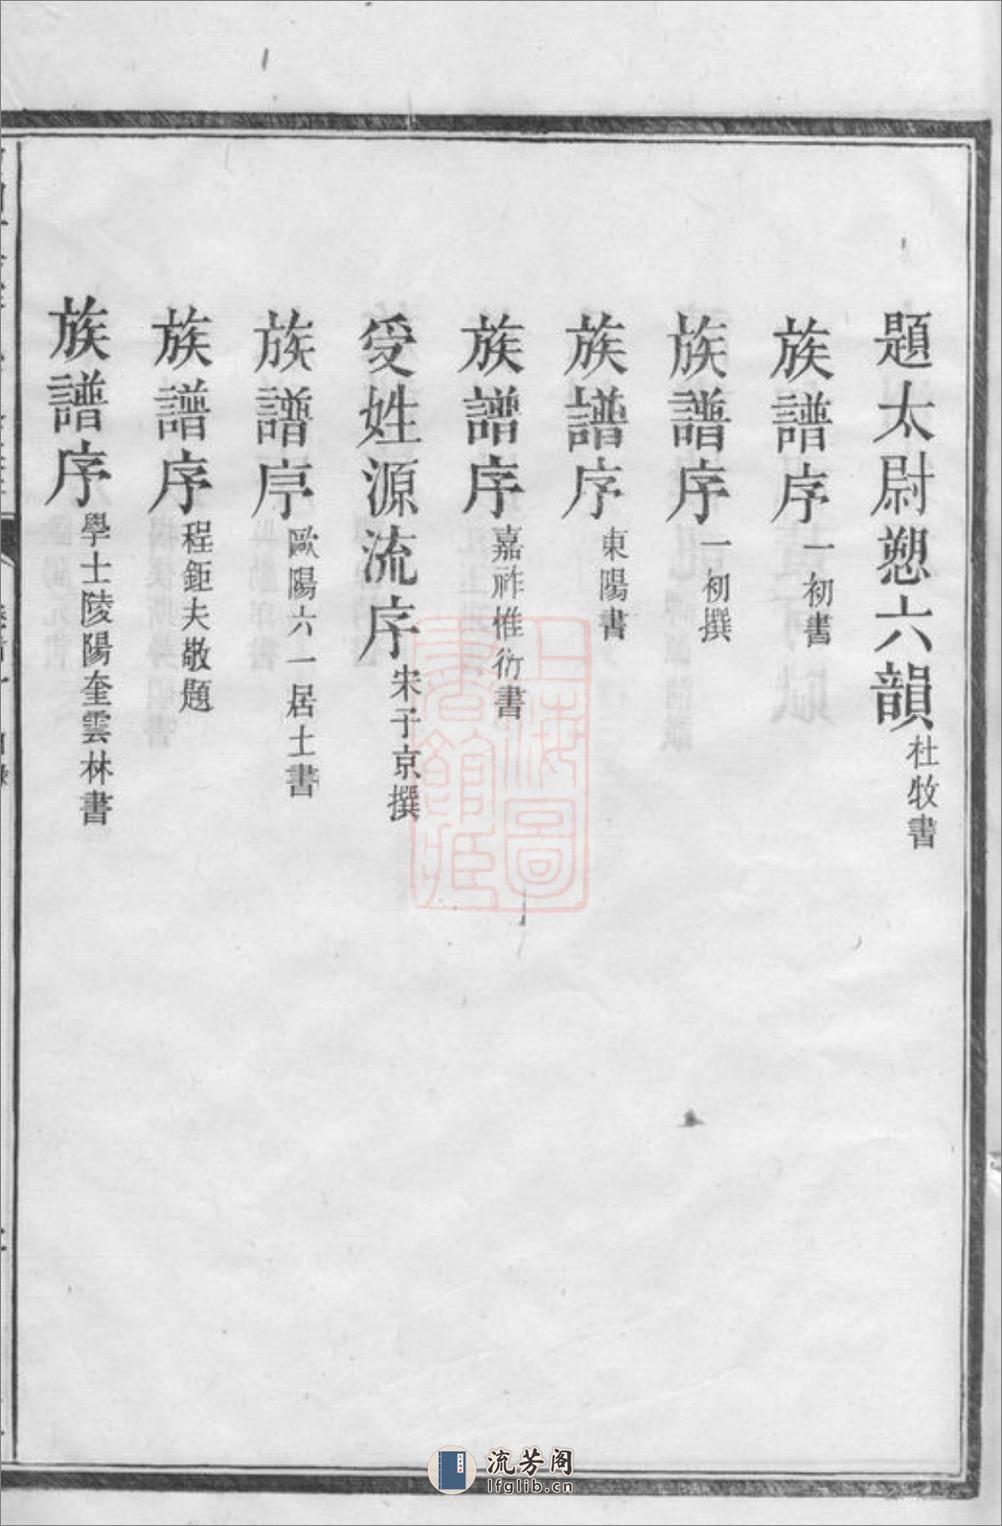 題太尉愬六韻杜牧書
族譜序一初書
族譜序一初撰
族譜序東陽書
族譜序嘉祚惟衍書
受姓源流序宋子京撰
族譜序歐陽六一居士書
族譜序程鉅夫敬題
族譜序學士陵陽奎雲林書
上海圖書館藏
流芳阁
lfglib.cn